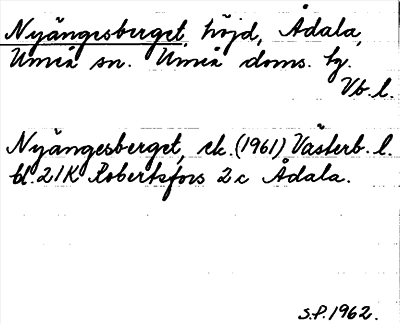 Nyängesberget, höjd, Ådala,
Umeå sn. Umeå doms. hg.
Vb. l.
Nyängesberget, ek. (1961) Västerb. l.
bl. 21K Robertsfors 2c Ådala.
S.P. 1962.